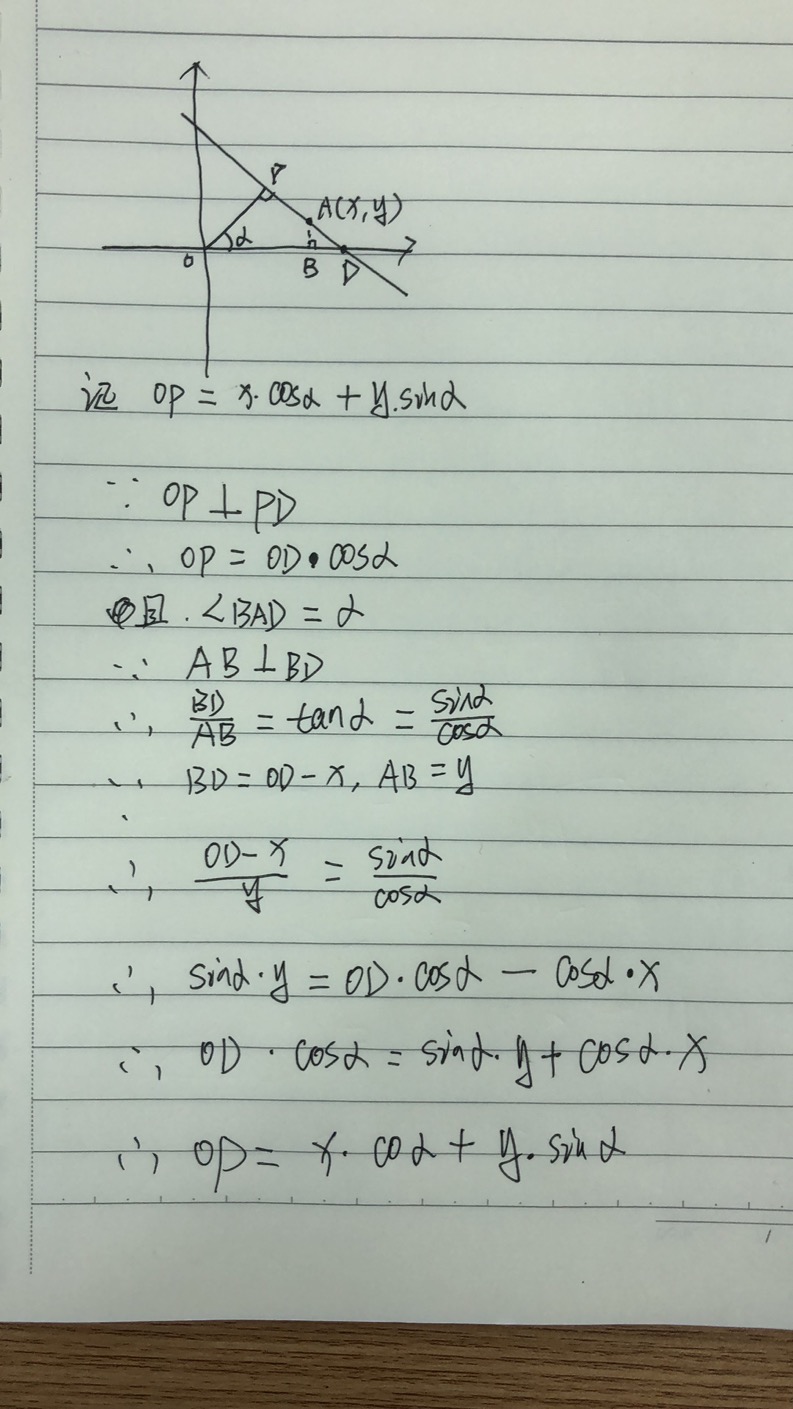 P
A(x,y)
α
O
B D
证 OP = x·cosα + y·sinα
∵ OP⊥PD
∴ OP = OD·cosα
且. ∠BAD = α
∵ AB⊥BD
∴ BD/AB = tanα = sinα/cosα
∵ BD = OD-x, AB = y
∴ OD-x/y = sinα/cosα
∴ sinα·y = OD·cosα - cosα·x
∴ OD·cosα = sinα·y + cosα·x
∴ OP = x·coα + y·sinα